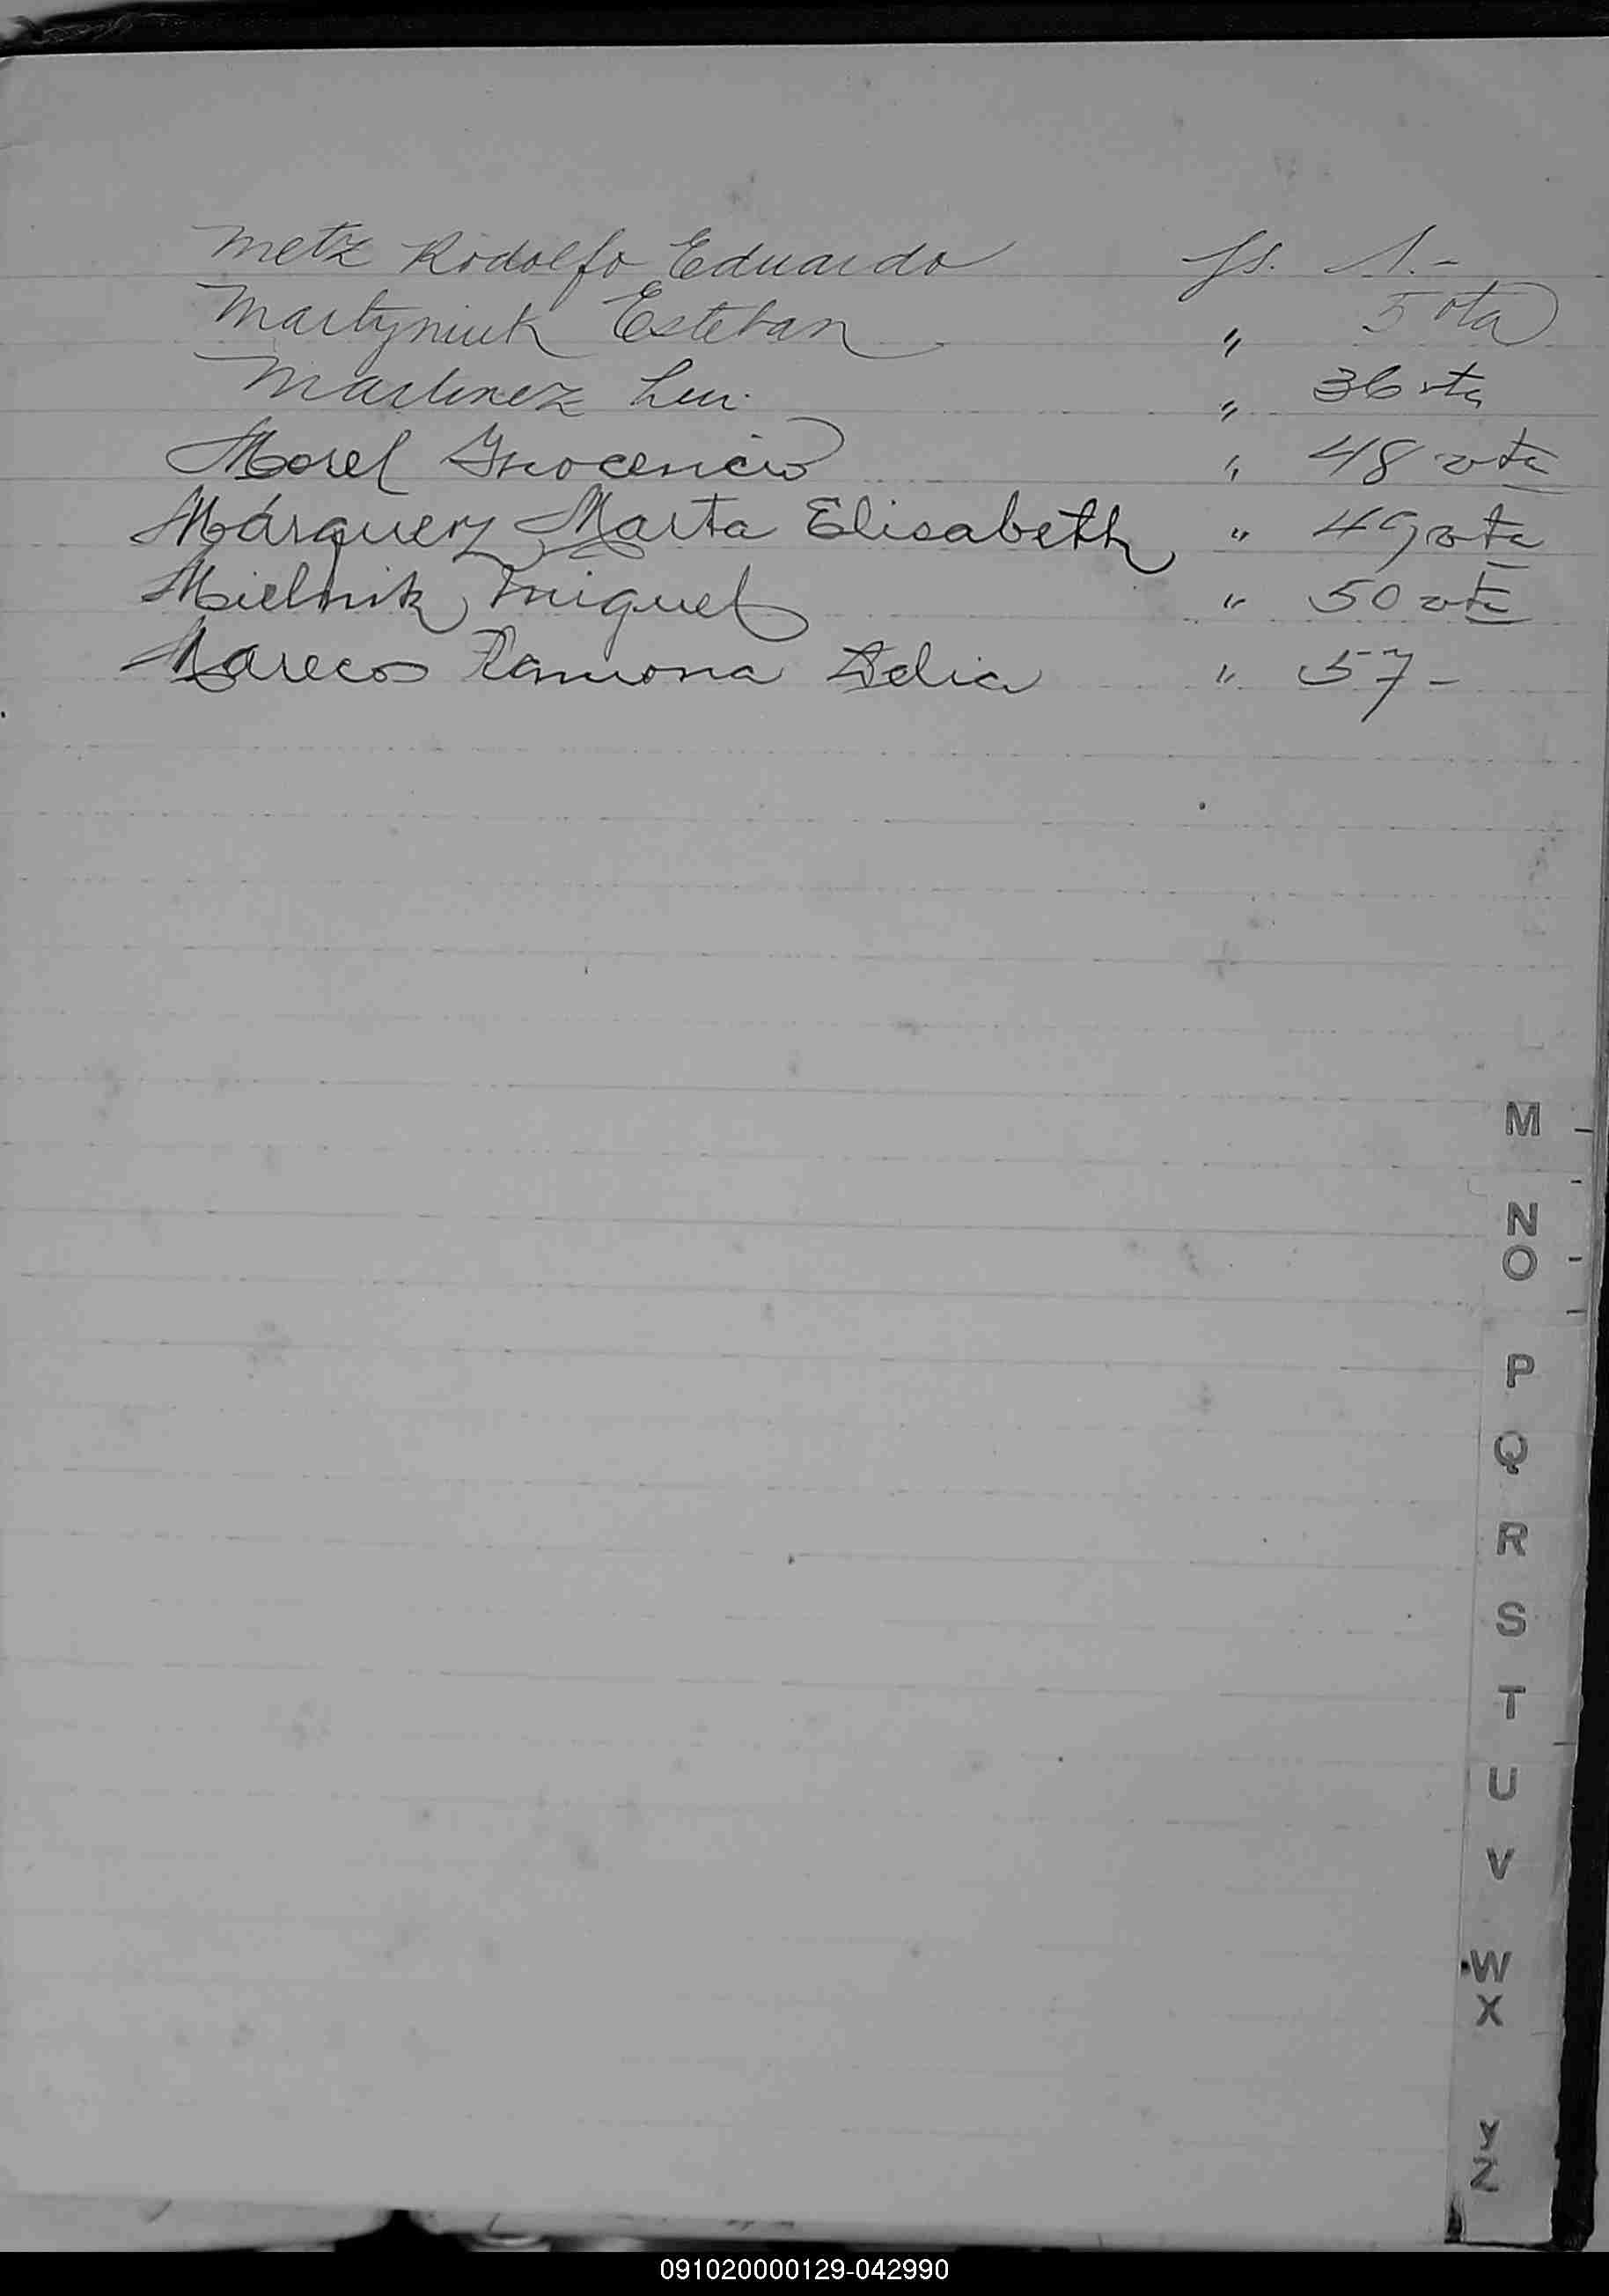 Metz Rodolfo Eduardo fs. 1.-
Martyniuk Esteban " 5 vta
Martinez Luis " 36 vta
Morel Inocencio " 48 vta
Márquez Marta Elisabeth " 49 vta
Mielnik Miguel " 50 vta
Marecos Ramona Delia " 57-
M
N
O
P
Q
R
S
T
U
V
W
X
Y
Z
091020000129-042990